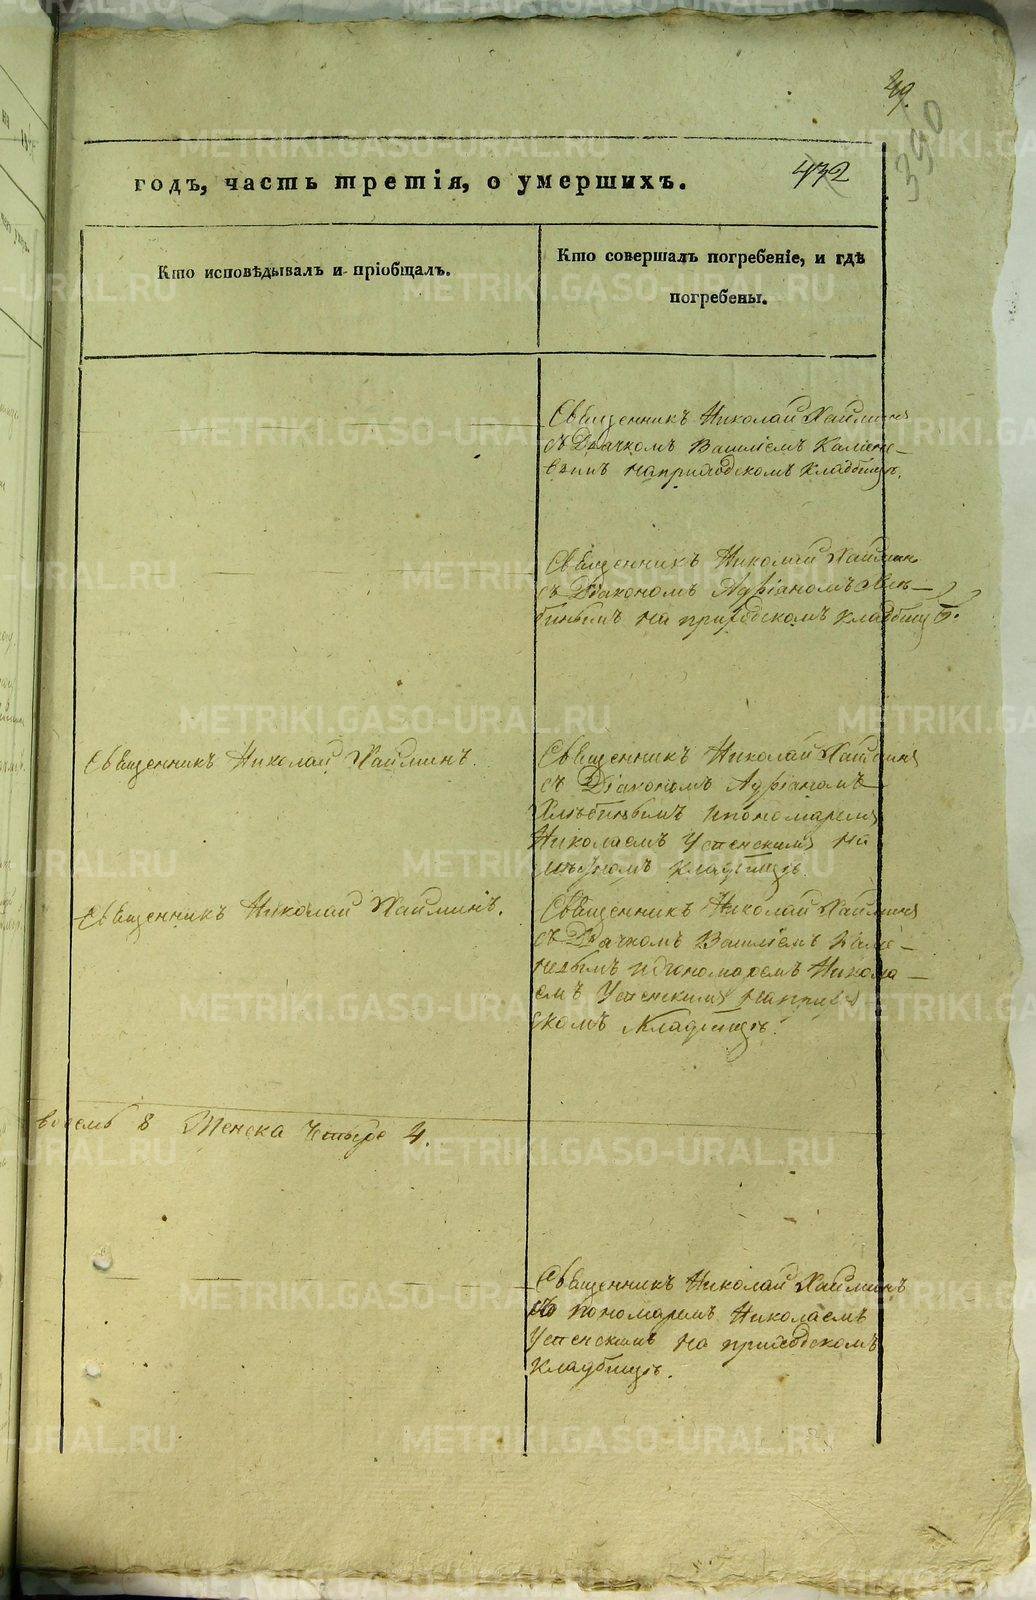 49.
3540
432
годъ, часть третія, о умершихъ.
Кто исповѣдывалъ и пріобщалъ.
Кто совершалъ погребеніе, и гдѣ
погребены.
Священникъ Николай Хайминъ
съ Дьячкомъ Василіемъ Камене-
вымъ на приходскомъ кладбищѣ.
Священникъ Николай Хайминъ
съ Діакономъ Адріаномъ Хлѣ-
бинымъ на приходскомъ кладбищѣ.
Священникъ Николай Хайминъ.
Священникъ Николай Хайминъ
съ Діакономъ Адріаномъ
Хлѣбинымъ и пономаремъ
Николаемъ Успенскимъ на
кладбищѣ.
Священникъ Николай Хайминъ.
Священникъ Николай Хайминъ
съ Дьячкомъ Василіемъ Каме-
невымъ и пономаремъ Никола-
емъ Успенскимъ на прихо
скомъ кладбищѣ.
восемь 8 Женска четыре 4.
Священникъ Николай Хайминъ
съ пономаремъ Николаемъ
Успенскимъ на приходскомъ
кладбищѣ.
METRIKI.GASO-URAL.RU